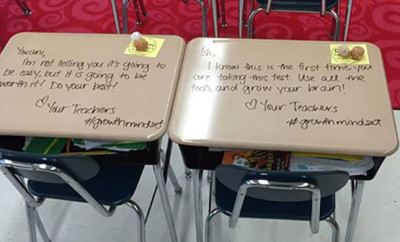 Yovani,
I'm not telling you it's going to
be easy, but it is going to be
worth it! Do your best!
♡ Your Teachers
#growthmindset
I know this is the first time you
are taking this test. Use all the
tools, and grow your brain!
♡ Your Teachers
#growthmindset